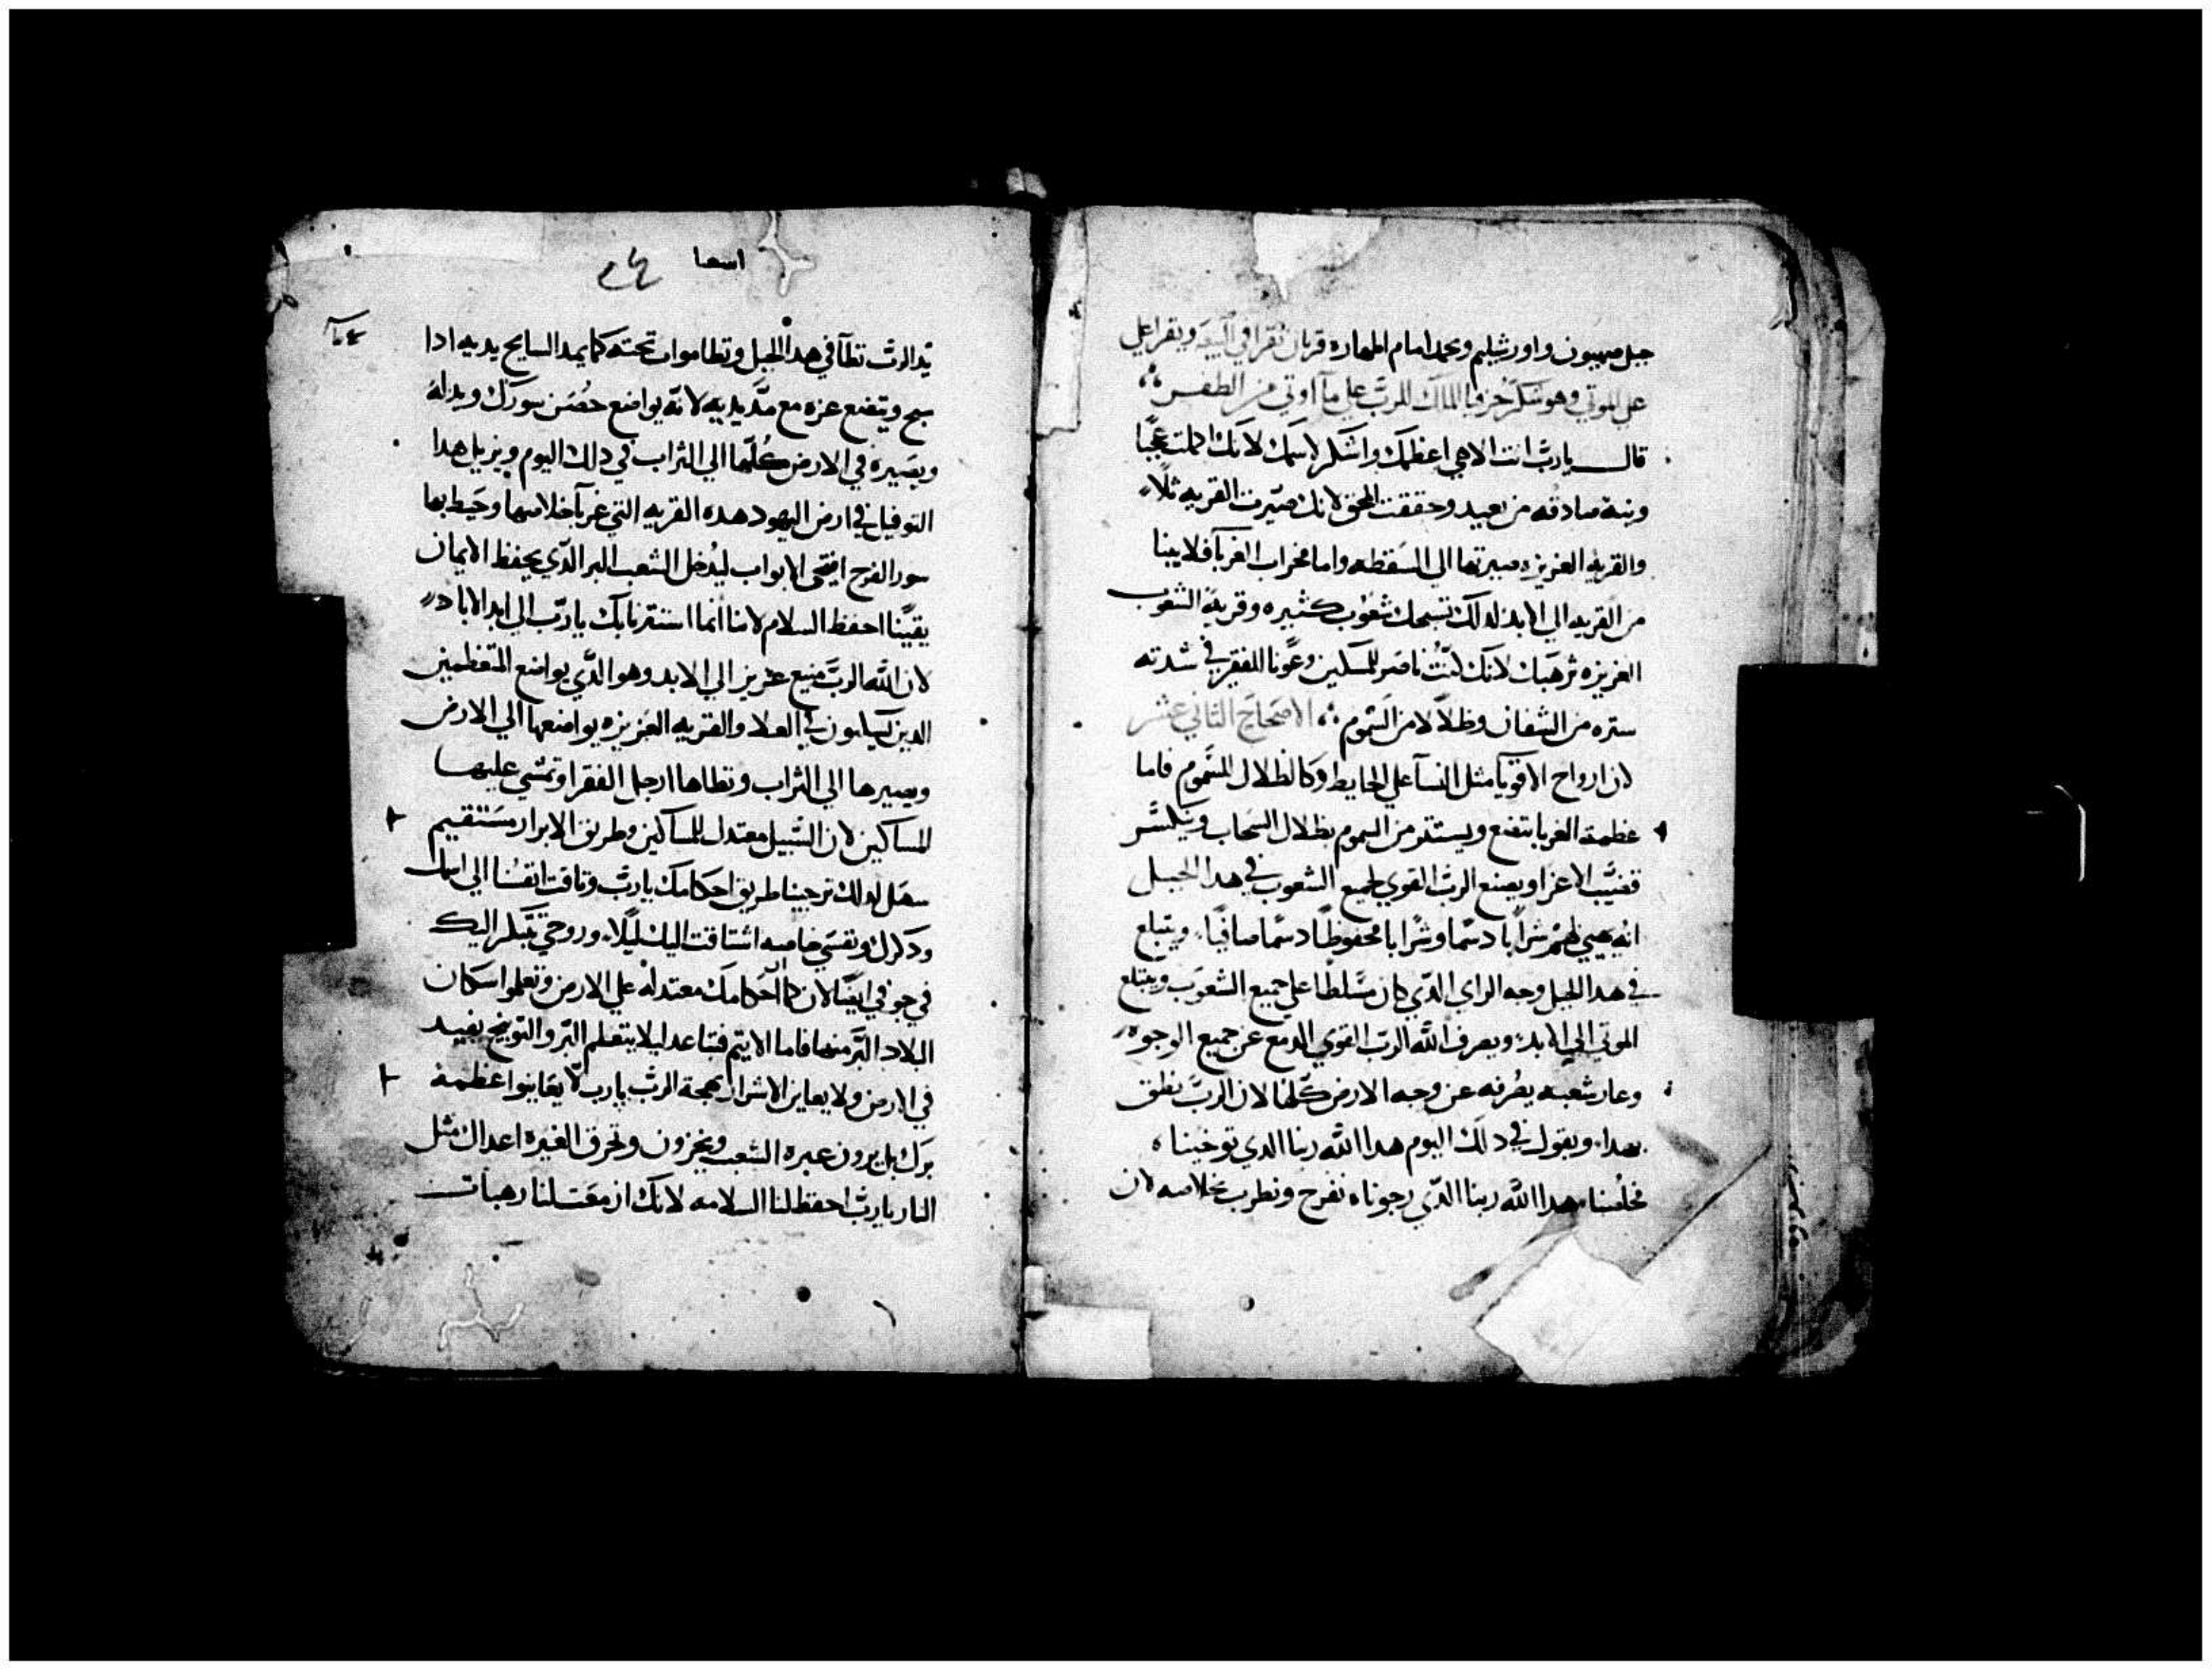 جبل صهيون واورشليم ويمجد امام اطهاره قربان تقرا في البيعه ويقرا علي
علي الموتي وهو شكر حزقيا الملك للرب علي ما اوتي من الطفس
قال يا رب انت الاهي اعظمك واشكر لاسمك لانك اكملت عجبا
ونية صادقه من بعيد وحققت الحق لانك صيرت القريه تلا
والقريه العزيزه صيرتها الي السقطه واما محراب الغربا فلا يبنا
من القريه الي الابد لدلك تسبحك شعوب كثيره وقرية الشعوب
العزيزه ترهبك لانك كنت ناصر للمسكين وعونا للفقير في شدته
ستره من الشفان وظلالا من السموم الاصحاح الثاني عشر
لان ارواح الاقويا مثل النسا علي الحايط وكالظلال السموم فاما
عظمة الغربا يتضع ويستتر من السموم بظلال السحاب ويتكسر
قضيب الاعزا ويصنع الرب القوي لجميع الشعوب في هدا الجبل
انه يهيي لهم شرابا دسما وشرابا محفوظا دسما صافيا ويبتلع
في هدا الجبل وجه الراي الدي كان مسلطا علي جميع الشعوب ويبتلع
الموتي الي الابد ويصرف الله الرب القوي الدمع عن جميع الوجوه
وعار شعبه يصرفه عن وجه الارض كلها لان الرب نطق
بهدا ويقول في دلك اليوم هدا الله ربنا الدي توخيناه
مخلصنا هدا الله ربنا الدي رجوناه نفرح ونطرب بخلاصه لان
اسعيا
يد الرب تطا في هدا الجبل وتطا مواب تحته كما يمد السابح يديه ادا
سبح ويتضع عزه مع مد يديه لانه يواضع حصن سورك ويدله
ويصيره في الارض كلها الي التراب في دلك اليوم ويزيل هدا
التوفيل في ارض اليهود هده القريه التي عز بها خلاصها وحيط بها
سور الفرح افتحي الابواب ليدخل الشعب البر الدي يحفظ الايمان
يقينا احفظ السلام لاننا انما استترنا بك يا رب الي ابد الاباد
لان الله الرب منيع عزيز الي الابد وهو الدي يواضع المتعظمين
الدين يسكنون في العلا والقريه العزيزه يواضعها الي الارض
ويصيرها الي التراب وتطاها ارجل الفقرا وتمشي عليها
المساكين لان السبيل معتدل للمساكين وطريق الابرار مستقيم
سهل لدلك ترجينا طريق احكامك يا رب وتاقت انفسنا الي اسمك
ودكرك ونفسي خاصه اشتاقت اليك ليلا وروحي تبكر اليك
في جوفي ايضا لان كما احكامك معتدله علي الارض وتعلموا سكان
البلاد البر منها فاما الاثيم فتباعد ليلا يتعلم البر والتوبيخ يفيد
في الارض ولا يعاين الاشرار بهجة الرب يا رب لا يعاينوا عظمة
برك بل يرون غيرة الشعب ويخزون وتحرق الغيره اعداك مثل
النار يا رب احفظ لنا السلامه لانك از معت لنا رهبات